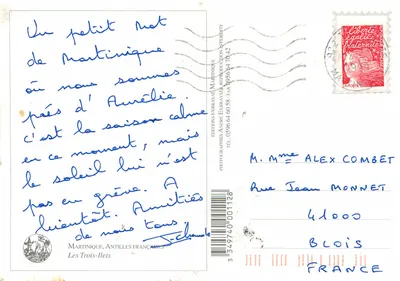 Un petit mot
de Martinique
où nous sommes
près d'Aurélie.
c'est la saison calme
en ce moment, mais
le soleil lui n'est
pas en grève. A
bientôt. Amitiés
de nous tous.
MARTINIQUE, ANTILLES FRANÇAISES
Les Trois-Ilets
3 349740 001128
Liberté
Egalité
Fraternité
M. Mme ALEX COMBET
Rue Jean MONNET
41000
BLOIS
FRANCE